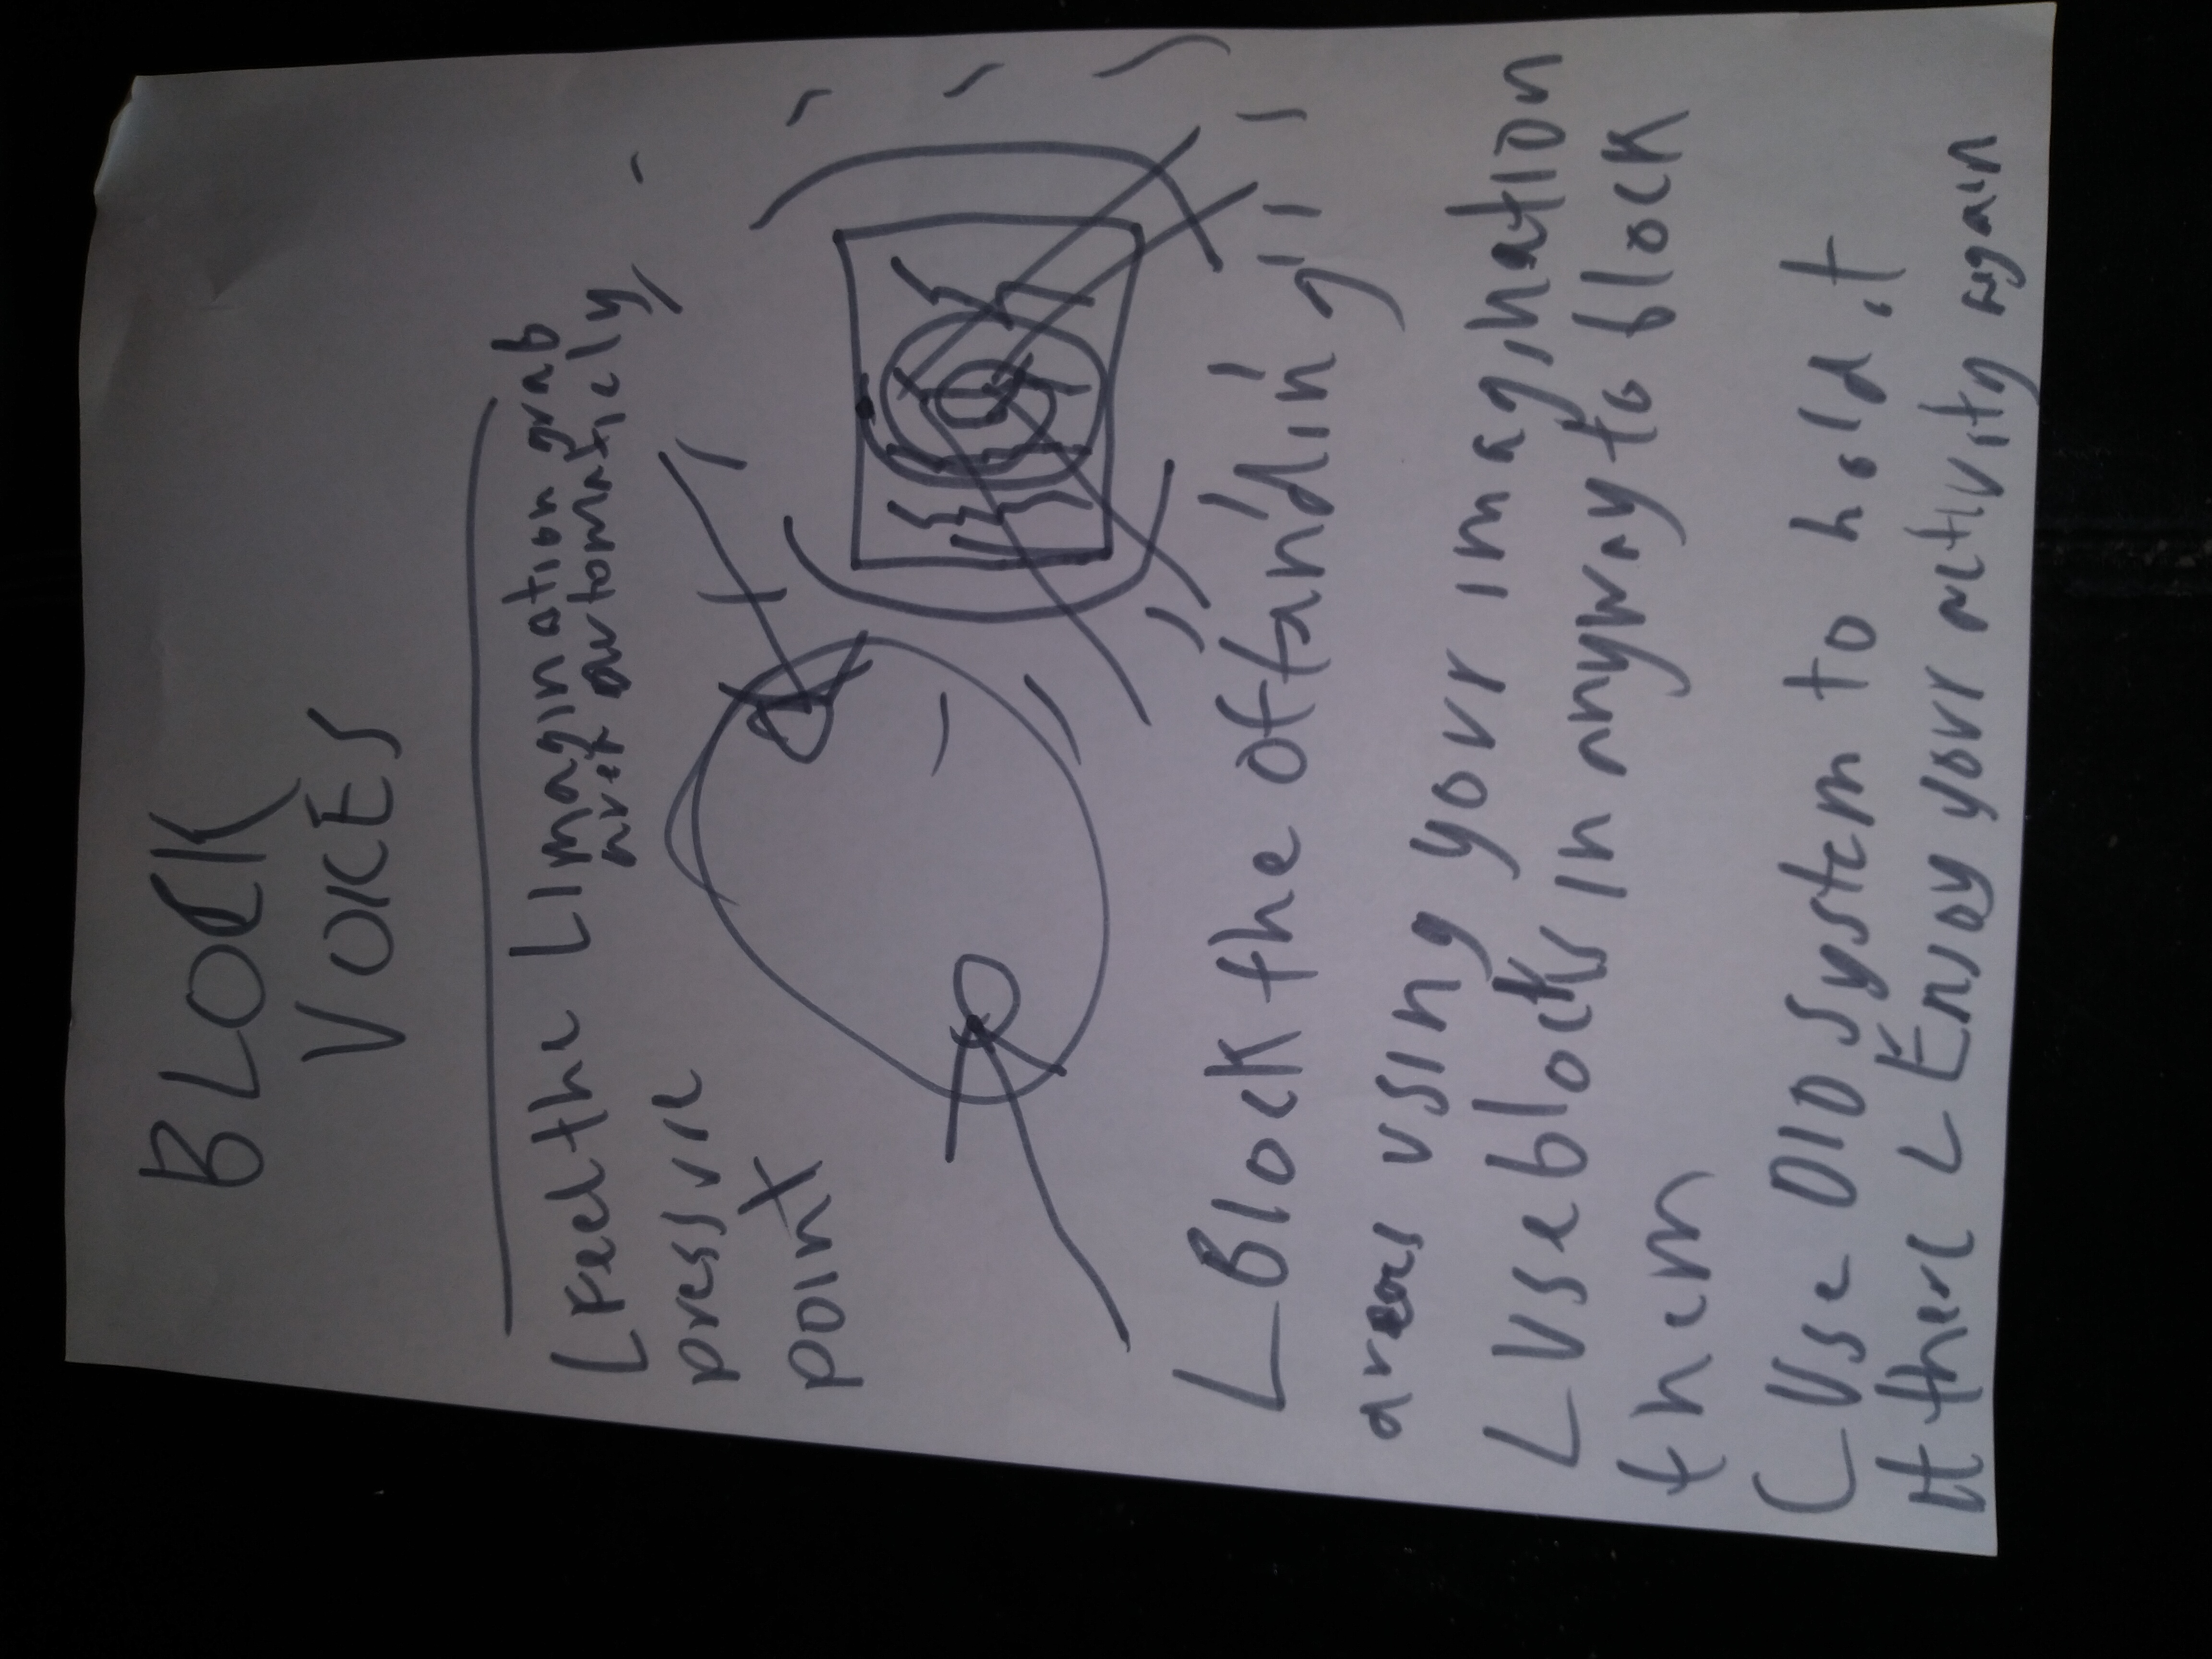 BLOCK
VOICES
Feel the
pressure
point
Imagination and
nift automaticly
Block the oftanding
areas using your imagination
Use blocks in anyway to block
them
Use Old system to hold it
there
Enjoy your activity again